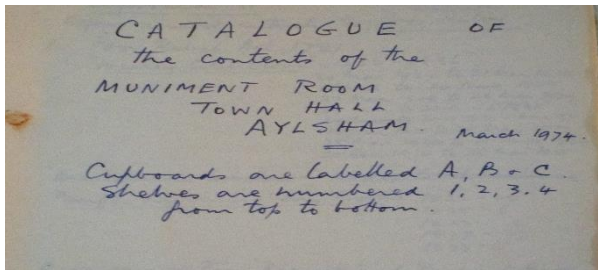 CATALOGUE OF
the contents of the
MUNIMENT ROOM
TOWN HALL
AYLSHAM. March 1974.
Cupboards are labelled A, B & C.
Shelves are numbered 1, 2, 3. 4
from top to bottom.